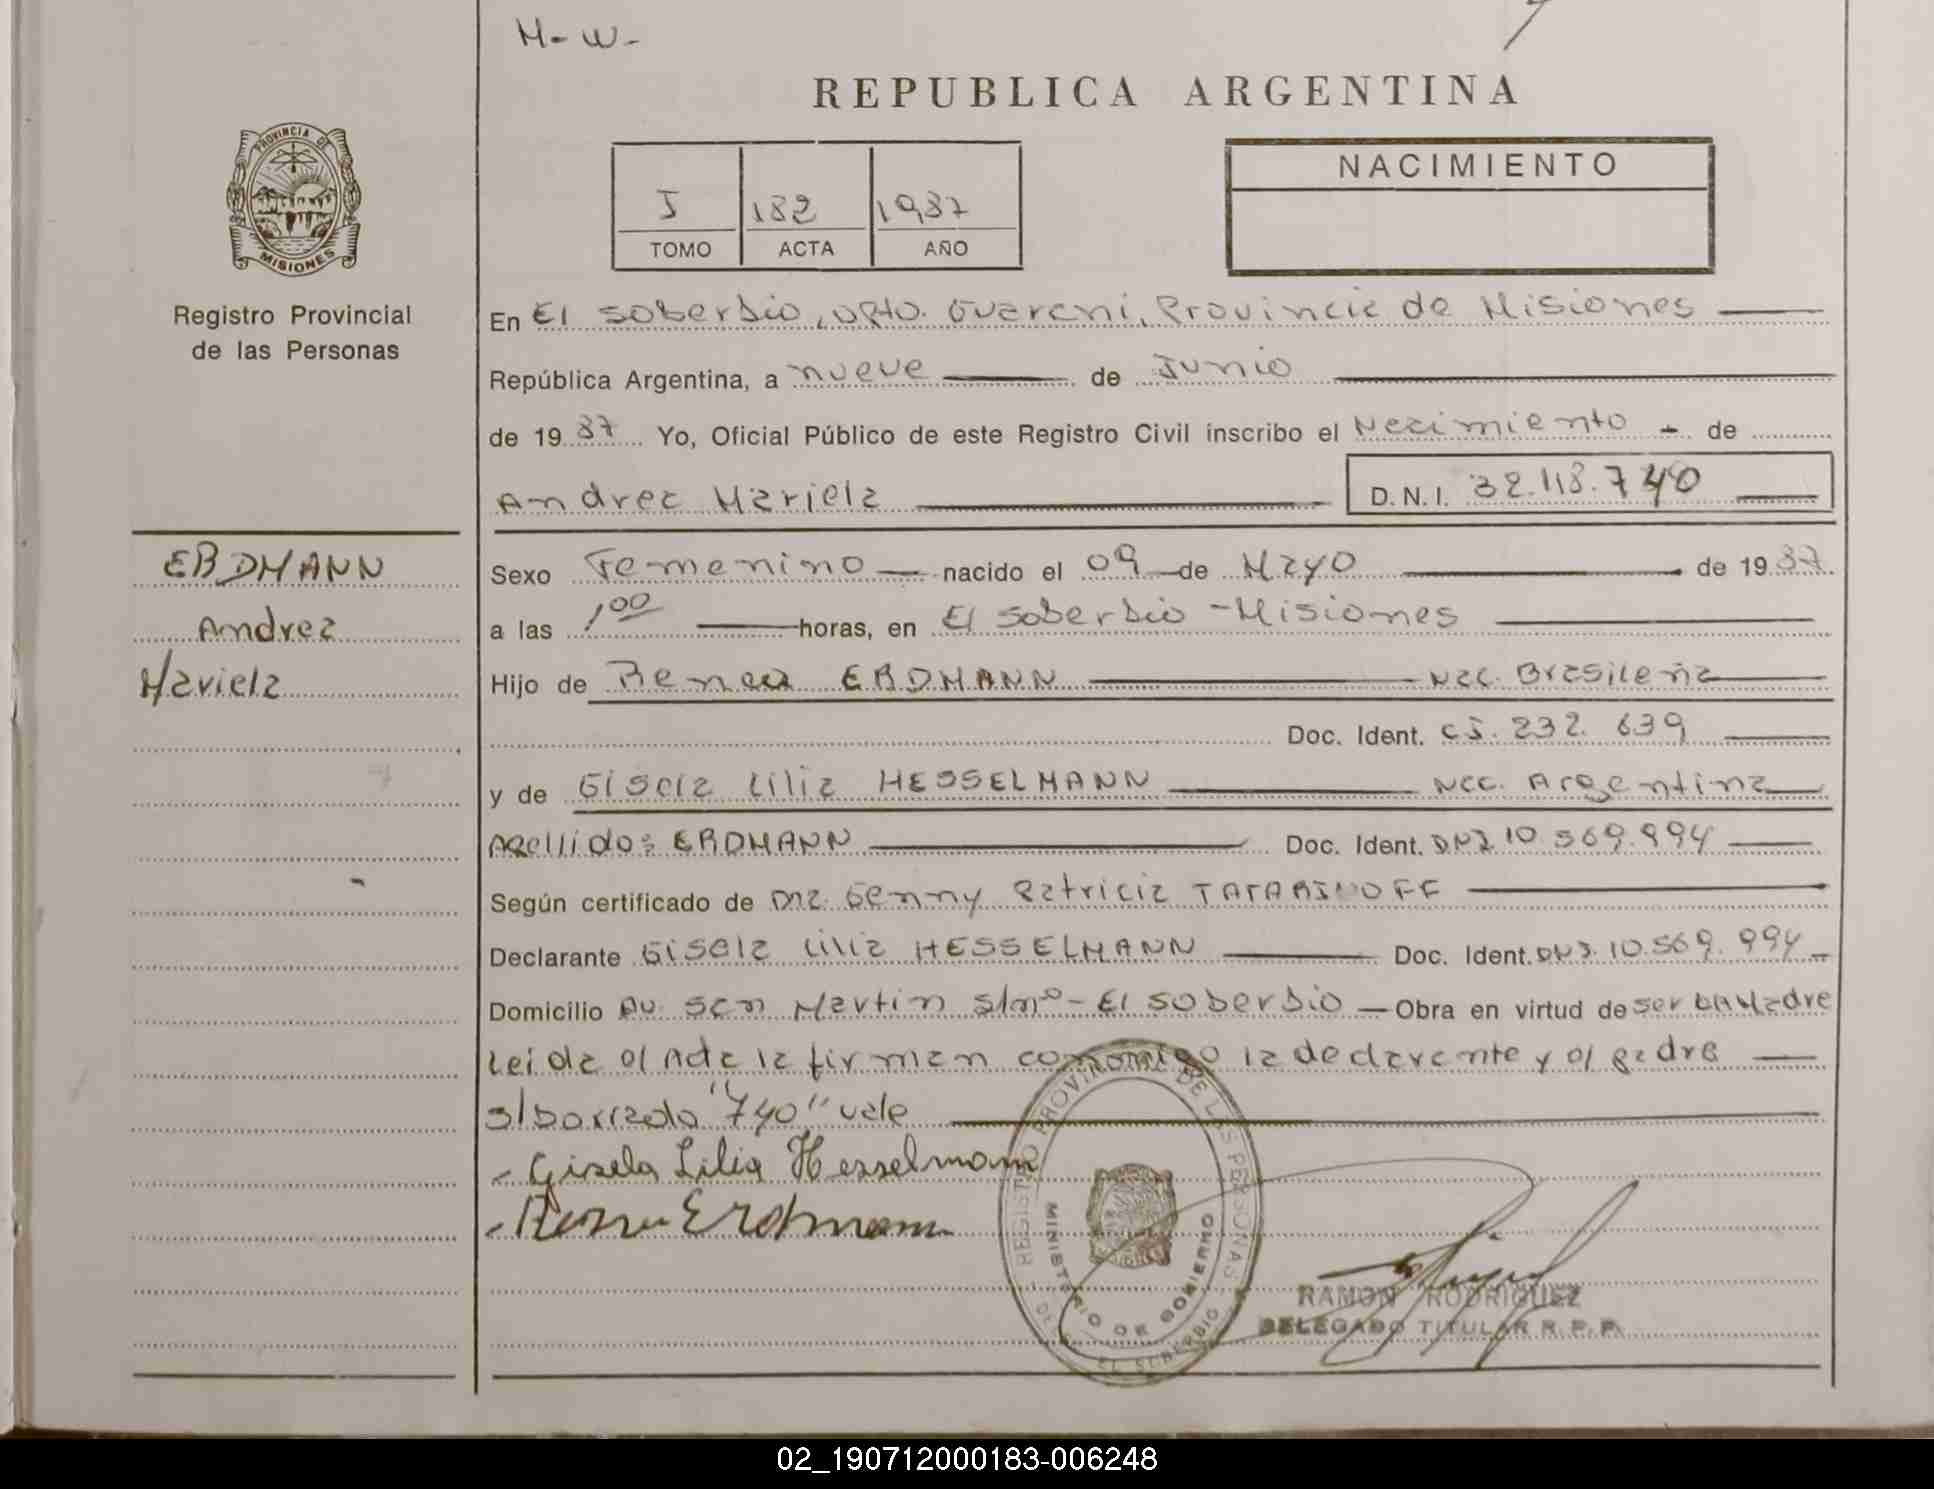 M-W-
REPUBLICA ARGENTINA
PROVINCIA DE MISIONES
I 182 1987
TOMO ACTA AÑO
NACIMIENTO
Registro Provincial
de las Personas
En El Soberbio, Dpto. Guarani, Provincia de Misiones
República Argentina, a nueve de Junio
de 1987 Yo, Oficial Público de este Registro Civil inscribo el Nacimiento - de
Andrea Mariela D.N.I. 32.118.740
ERDMANN
Andrea
Mariela
Sexo Femenino nacido el 09 de Mayo de 1987
a las 1,00 horas, en El Soberbio - Misiones
Hijo de ERDMANN Nac. Brasileña
Doc. Ident. CI. 232.639
y de Gisela Lilia HESSELMANN Nac. Argentina
Apellido: ERDMANN Doc. Ident. DNI 10.569.994
Según certificado de Dra. Genny Patricia TATARINOFF
Declarante Gisela Lilia HESSELMANN Doc. Ident. DNI. 10.569.994
Domicilio Av. San Martin S/nº - El Soberbio - Obra en virtud de ser LA Madre
Leida el Acta la firman conmigo la declarante y el padre
s/borrado "740" vale
- Gisela Lilia Hesselmann
- Erdmann
REGISTRO PROVINCIAL DE LAS PERSONAS
MINISTERIO DE GOBIERNO
EL SOBERBIO
RAMON RODRIGUEZ
DELEGADO TITULAR R.P.P.
02_190712000183-006248